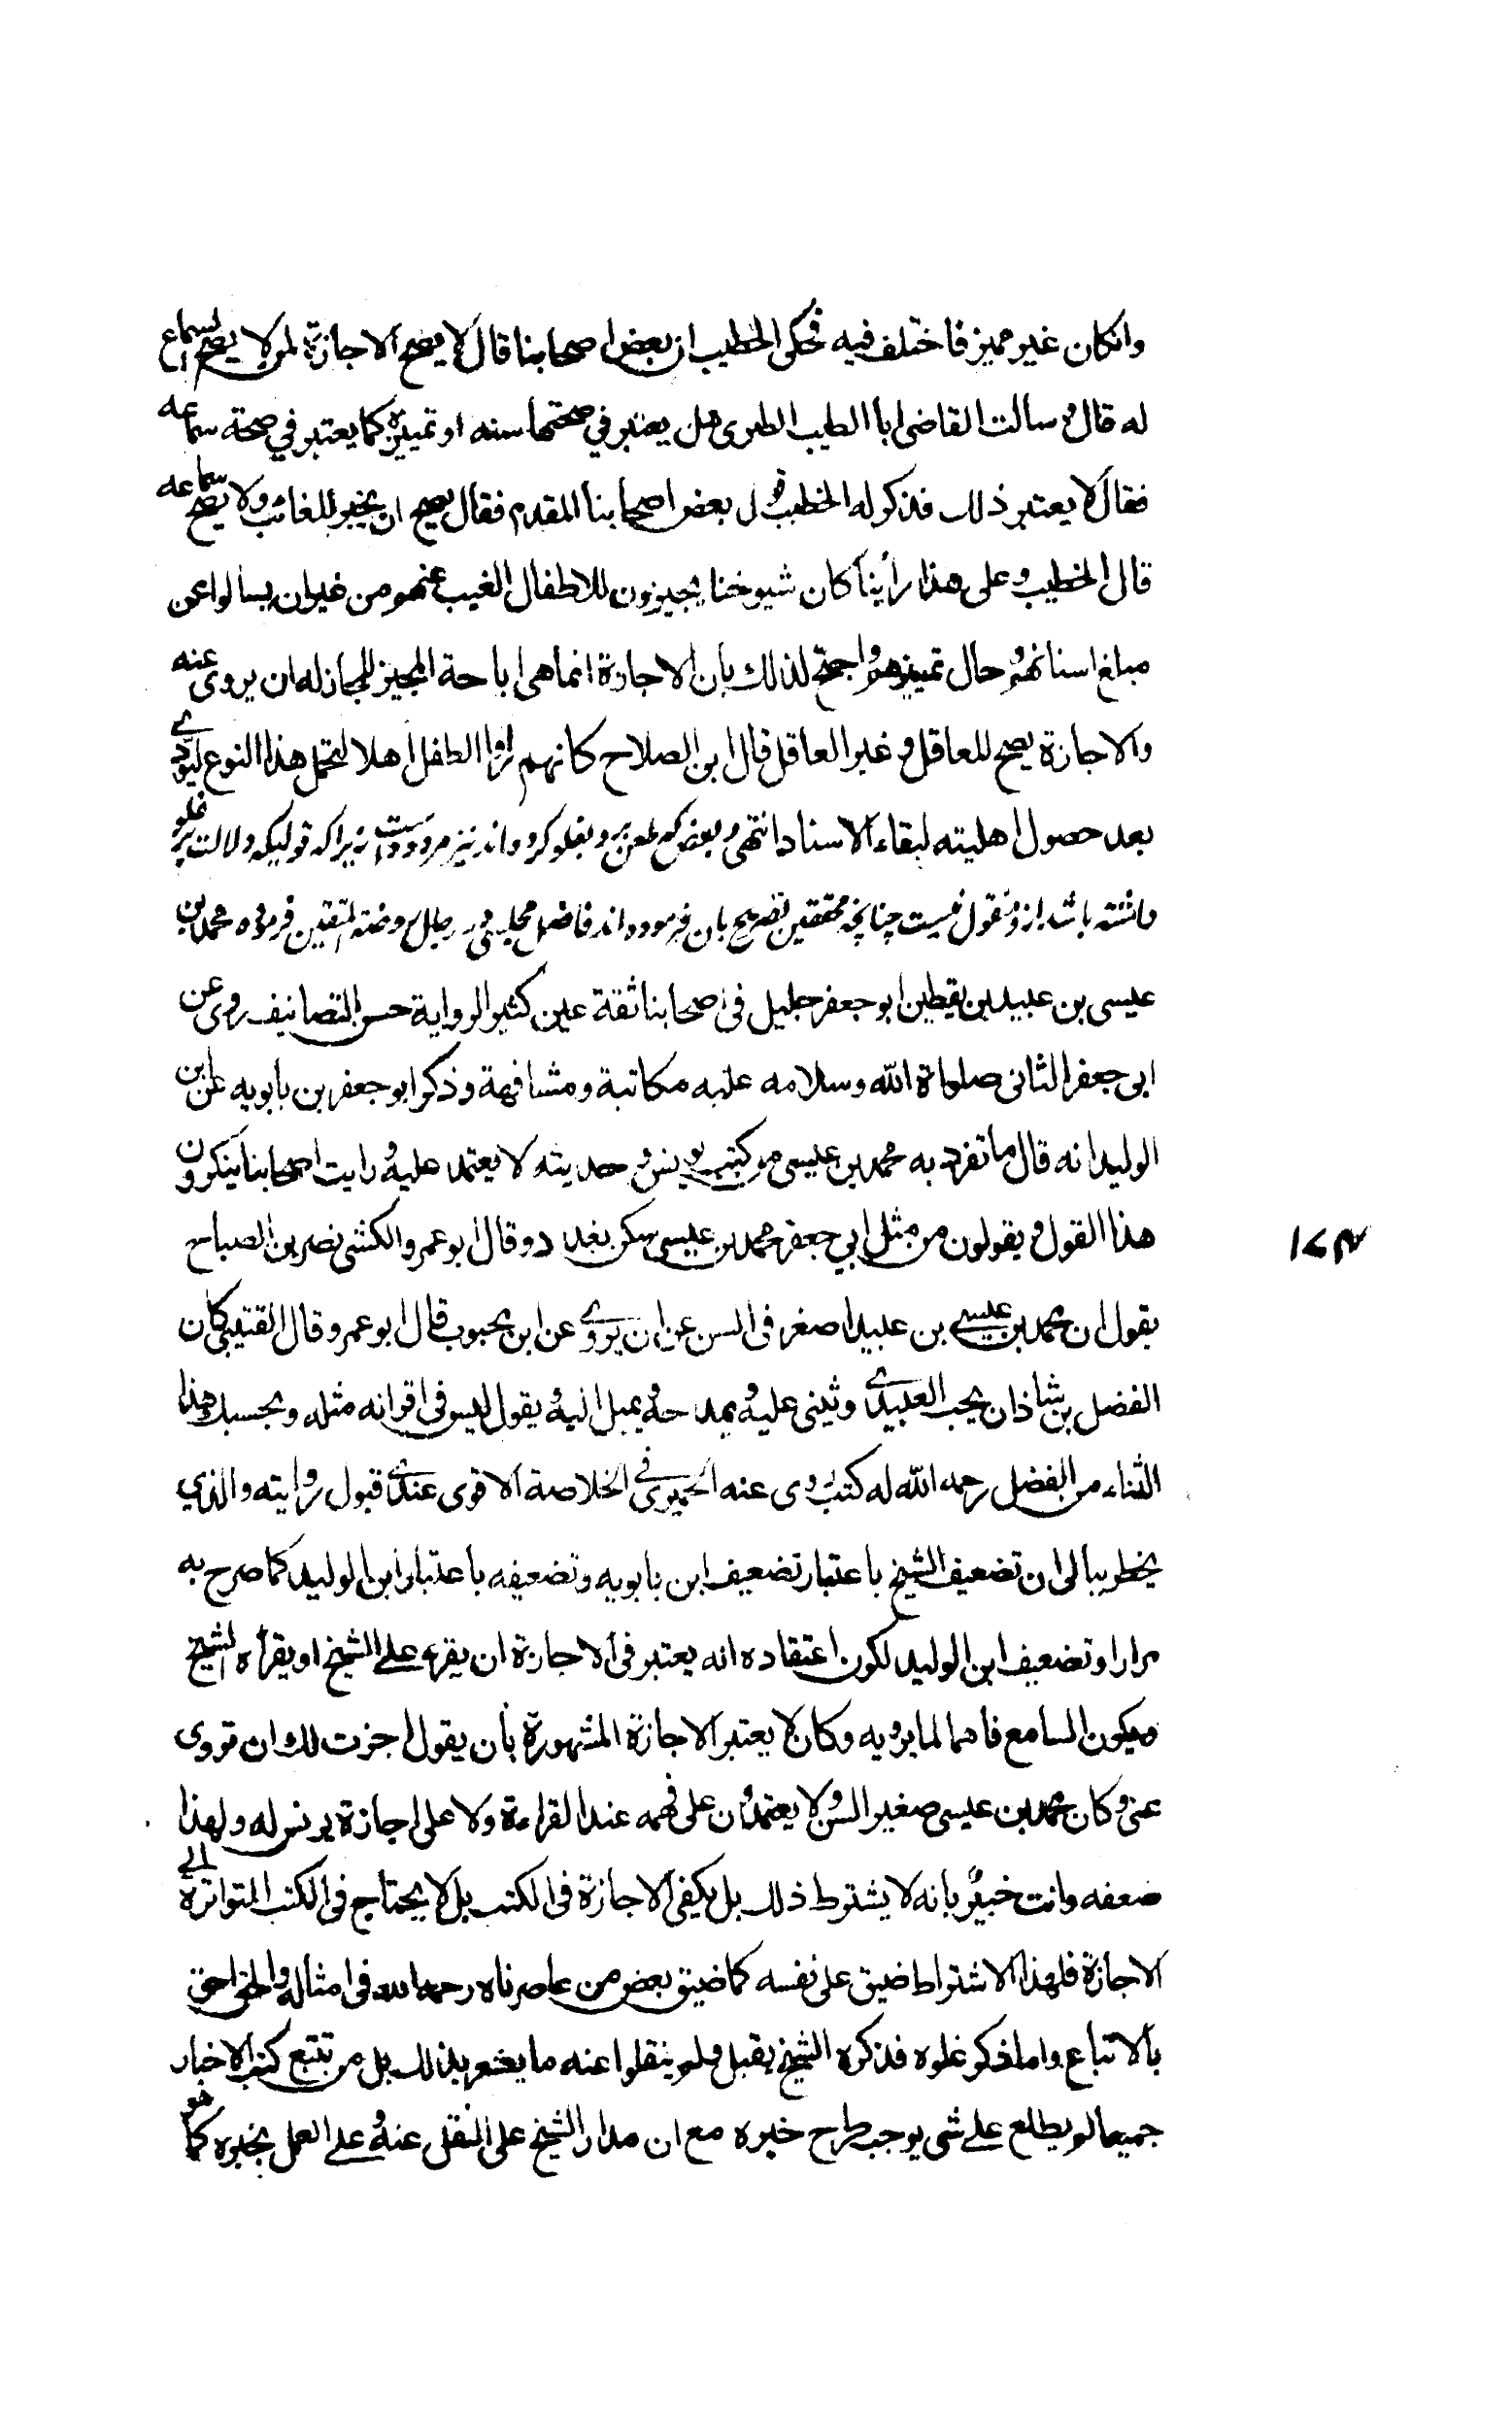 وانكان غير مميز فاختلف فيه فحكى الخطيب ان بعض اصحابنا قال لا يصح الاجازة لمن لا يصح السماع
له قال و سالت القاضى ابا الطيب الطبرى هل يعتبر في صحتها سنه او تمييزه كما يعتبر في صحة سماعه
فقال لا يعتبر ذلك فذكر له الخطيب قول بعض اصحابنا المقدم فقال يصح ان يجيز للغائب ولا يصح سماعه
قال الخطيب وعلى هذا رأينا كان شيوخنا يجيزون للاطفال الغيب عنهم من غير ان يسالوا عن
مبلغ اسنانهم و حال تمييزهم واحتج لذلك بان الاجازة انما هى اباحة المجيز للمجاز له ان يروى عنه
والاجازة يصح للعاقل و غير العاقل قال ابن الصلاح كانهم راوا الطفل اهلا لتحمل هذا النوع ليودى
بعد حصول اهليته لبقاء الاسناد انتهى و بعض كه طعن برو بغلو كرده اند نيز مردودست زيراكه قوليكه دلالت بر غلو
داشته باشد ازو منقول نيست چنانچه محققين تصريح بان فرموده اند فاضل مجلسى در رجال روضة المتقين فرموده محمد بن
عيسى بن عبيد بن يقطين ابو جعفر جليل فى اصحابنا ثقة عين كثير الرواية حسن التصانيف روى عن
ابى جعفر الثانى صلواة الله وسلامه عليه مكاتبة ومشافهة و ذكر ابو جعفر بن بابويه عن ابن
الوليد انه قال ما تفرد به محمد بن عيسى من كتب يونس و حديثه لا يعتمد عليه و رايت اصحابنا ينكرون
هذا القول و يقولون من مثل ابي جعفر محمد بن عيسى سكن بغداد وقال ابو عمرو الكشى نصر بن الصباح
يقول ان محمد بن عيسى بن عبيد اصغر فى السن عن ان يروى عن ابن محبوب قال ابو عمرو قال القتيبى كان
الفضل بن شاذان يحب العبيدى و ثينى عليه و يمدحه و يميل اليه و يقول ليس فى اقرانه مثله و بحسبك هذا
الثناء من الفضل رحمه الله له كتب روى عنه الحميرى فى الخلاصة الاقوى عندى قبول روايته والذي
يخطر ببالى ان تضعيف الشيخ باعتبار تضعيف ابن بابويه و تضعيفه باعتبار ابن الوليد كما صرح به
مرارا و تضعيف ابن الوليد لكون اعتقاده انه يعتبر فى الاجازة ان يقرء على الشيخ او يقرأه الشيخ
ويكون السامع فاهما لما يرويه وكان لا يعتبر الاجازة المشهورة بأن يقول اجزت لك ان تروى
عنى و كان محمد بن عيسى صغير السن ولا يعتمدون على فهمه عند القراءة ولا على اجازة يونس له و لهذا
ضعفه وانت خبير بانه لا يشترط ذلك بل يكفى الاجازة فى الكتب بل لا يحتاج فى الكتب المتواترة الى
الاجازة فلهذا الاشتراط ضيق على نفسه كما ضيق بعض من عاصرناه رحمه الله فى امثاله والحق احق
بالاتباع واما ذكر غلوه فذكره الشيخ بقيل ولم ينقلوا عنه ما يشعر بذلك بل من تتبع كتب الاخبار
جميعا لم يطلع على شى يوجب طرح خبره مع ان مدار الشيخ على النقل عنه و على العمل بخبره كما هو